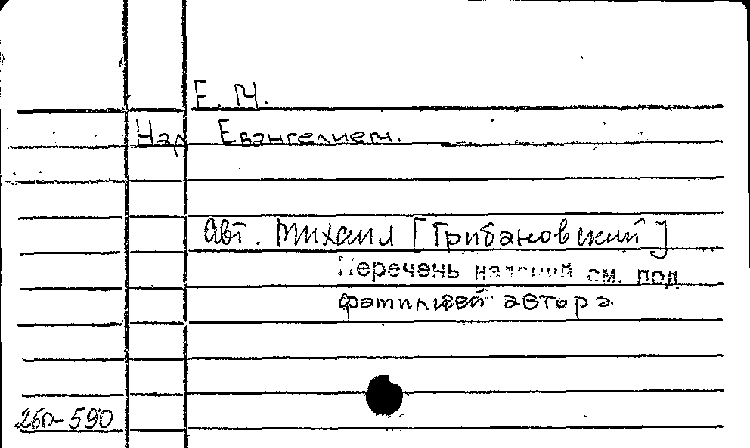 Е. М.
Над Евангелием.
Авт. Михаил [Грибановский]
Перечень изданий см. под
фамилией автора
260-590